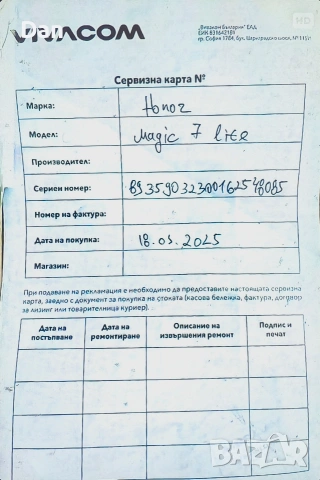 VIVACOM
Dan
"Виваком България" ЕАД
ЕИК 831642181
гр. София 1784, бул. Цариградско шосе, № 115И
HD
Сервизна карта №
Марка: Honor
Модел: Magic 7 lite
Производител:
Сериен номер:
Номер на фактура:
Дата на покупка: 18.03.2025
Магазин:
При подаване на рекламация е необходимо да предоставите настоящата сервизна
карта, заедно с документ за покупка на стоката (касова бележка, фактура, договор
за лизинг или товарителница куриер).
Дата на постъпване
Дата на ремонтиране
Описание на извършения ремонт
Подпис и печат
BAZAR